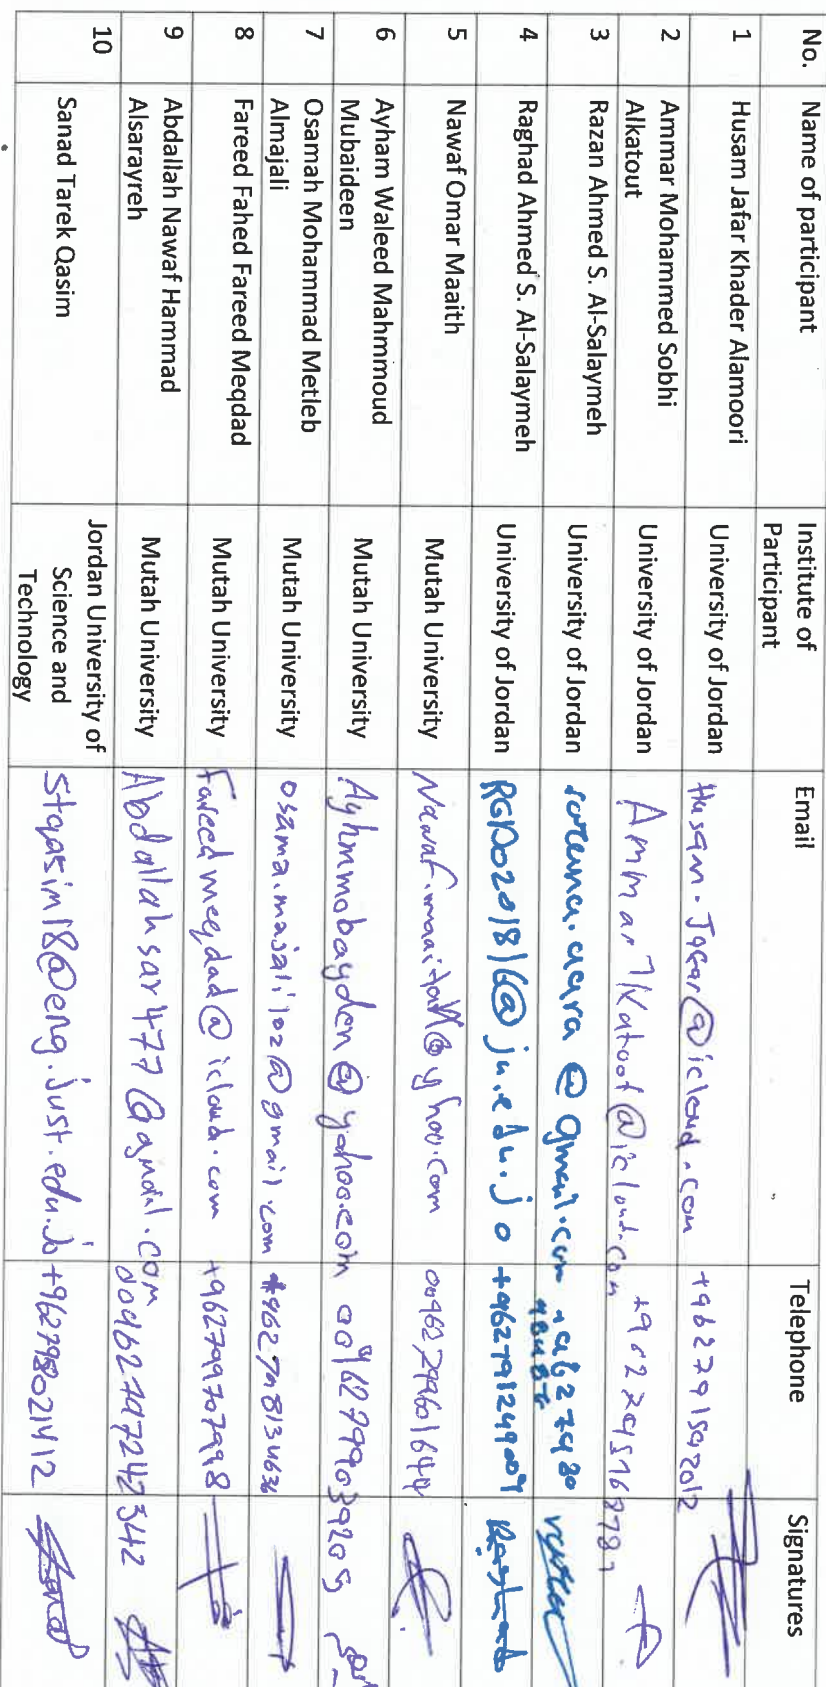 No. Name of participant Institute of Participant Email Telephone Signatures
1 Husam Jafar Khader Alamoori University of Jordan Husam.Jafar@icloud.com +962791592012
2 Ammar Mohammed Sobhi Alkatout University of Jordan
3 Razan Ahmed S. Al-Salaymeh University of Jordan
4 Raghad Ahmed S. Al-Salaymeh University of Jordan RGD0201816@ju.edu.jo +962791249009
5 Nawaf Omar Maaith Mutah University 00962799601644
6 Ayham Waleed Mahmmoud Mubaideen Mutah University Ayhmmobayden@yahoo.com 00962799039205
7 Osamah Mohammad Metleb Almajali Mutah University osama.majali102@gmail.com
8 Fareed Fahed Fareed Meqdad Mutah University Fareedmeqdad@icloud.com +962799707998
9 Abdallah Nawaf Hammad Alsarayreh Mutah University Abdallahsar477@gmail.com
10 Sanad Tarek Qasim Jordan University of Science and Technology Stqasim18@eng.just.edu.jo +962798021412